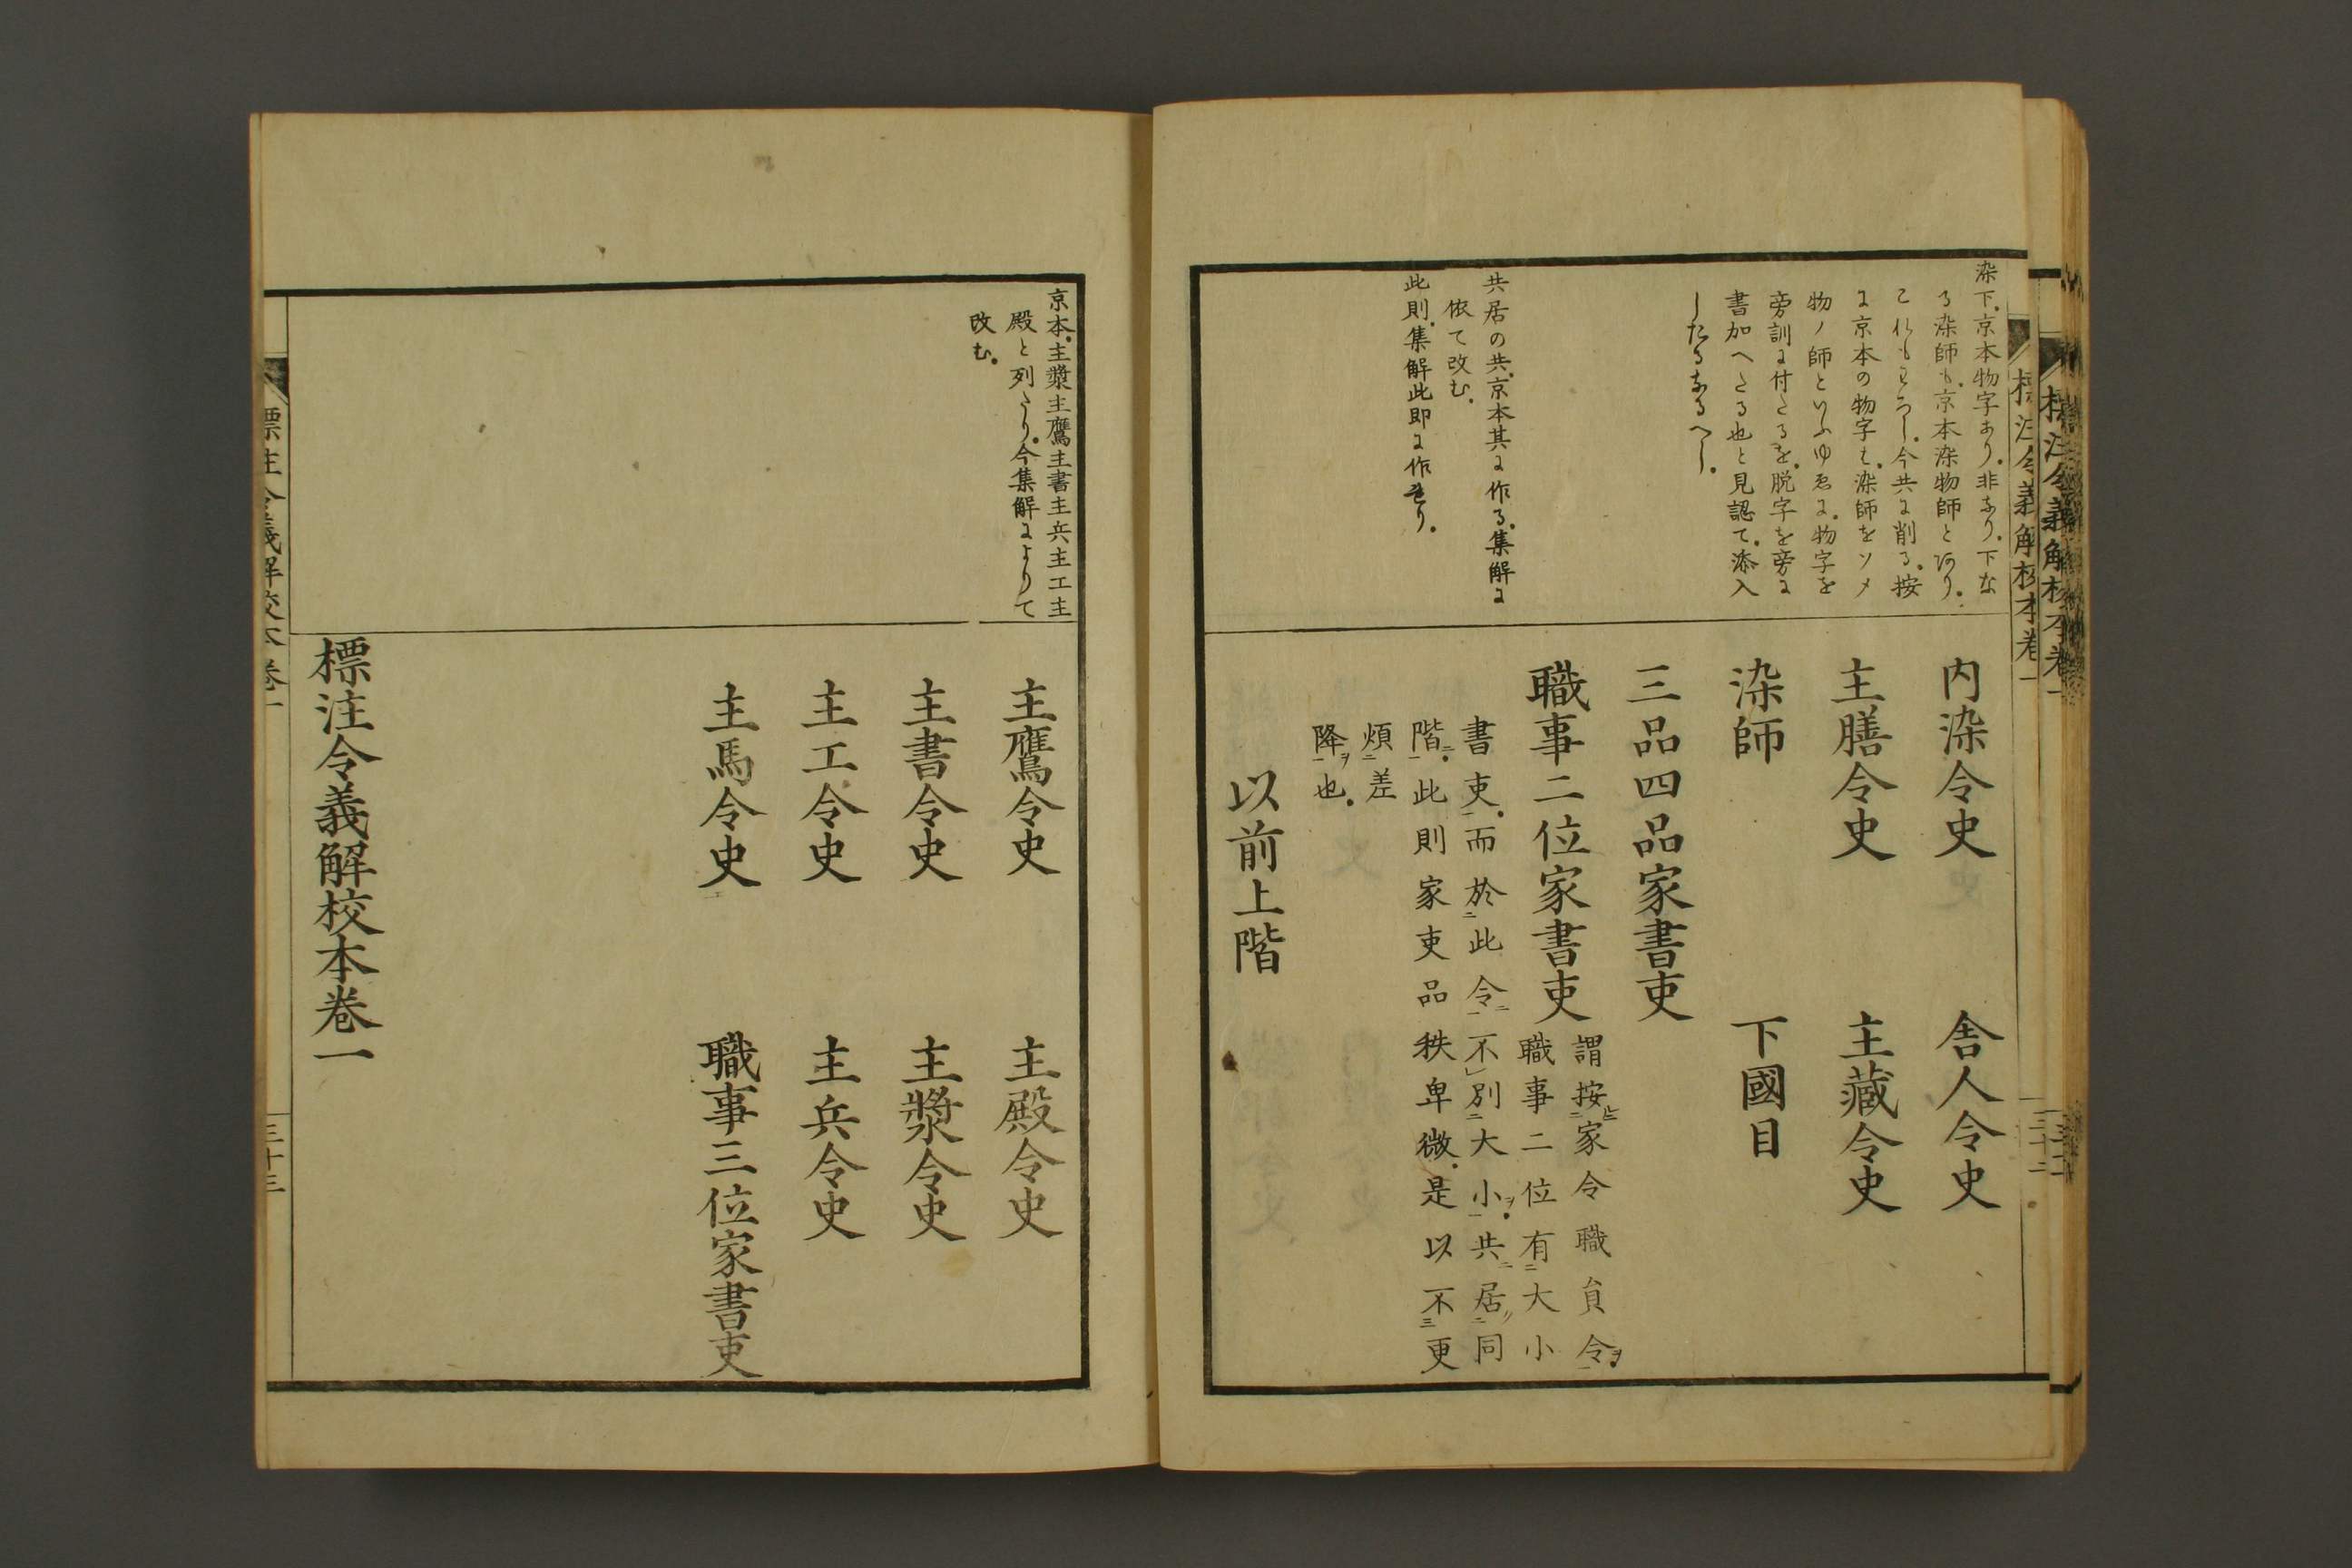 標注令義解校本卷一
三十二
染下。京本物字あり。非なり。下な
る染師も。京本染物師とあり。
これもわろし。今共に削る。按
に京本の物字も。染師をソメ
物ノ師といふゆゑに。物字を
旁訓に付たるを。脱字を旁に
書加へたる也と見認て。添入
したるなるへし。
共居の共。京本其に作る。集解に
依て改む。
此則。集解此即に作れり。
内染令史　舎人令史
主膳令史　主藏令史
染師　下國目
三品四品家書吏
職事二位家書吏
謂按家令職員令。
職事二位有大小
書吏。而於此令不別大小。共居同
階。此則家吏品秩卑微。是以不更
煩差
降也。
以前上階
京本。主漿主鷹主書主兵主工主
殿と列たり。今集解によりて
改む。
主鷹令史　主殿令史
主書令史　主漿令史
主工令史　主兵令史
主馬令史　職事三位家書吏
標注令義解校本卷一
標注令義解校本卷一
三十三